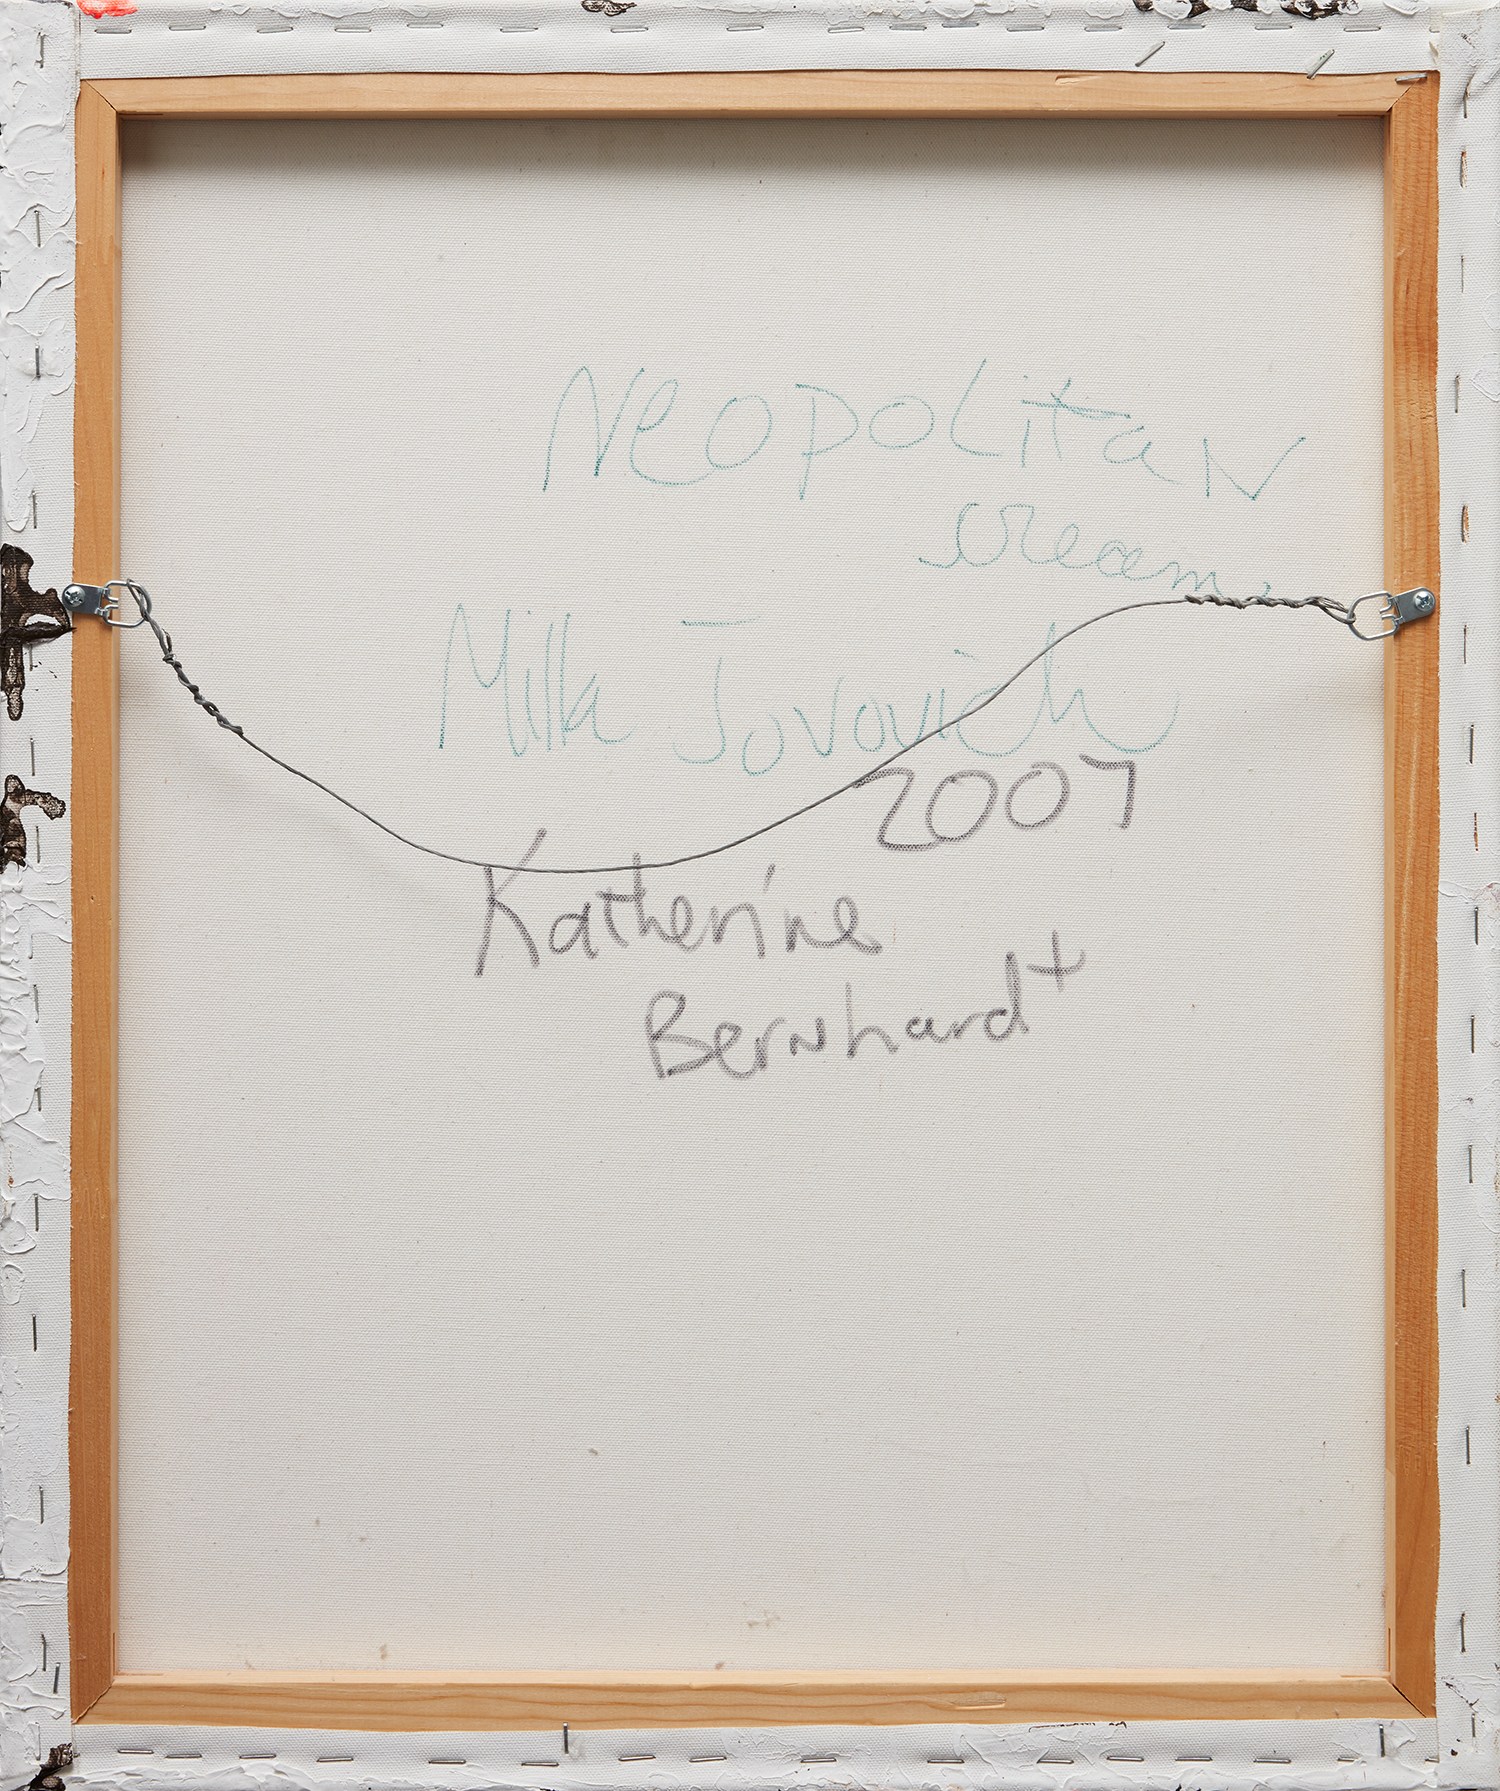 Neopolitan
cream
Milla Jovovich
2007
Katherine
Bernhardt